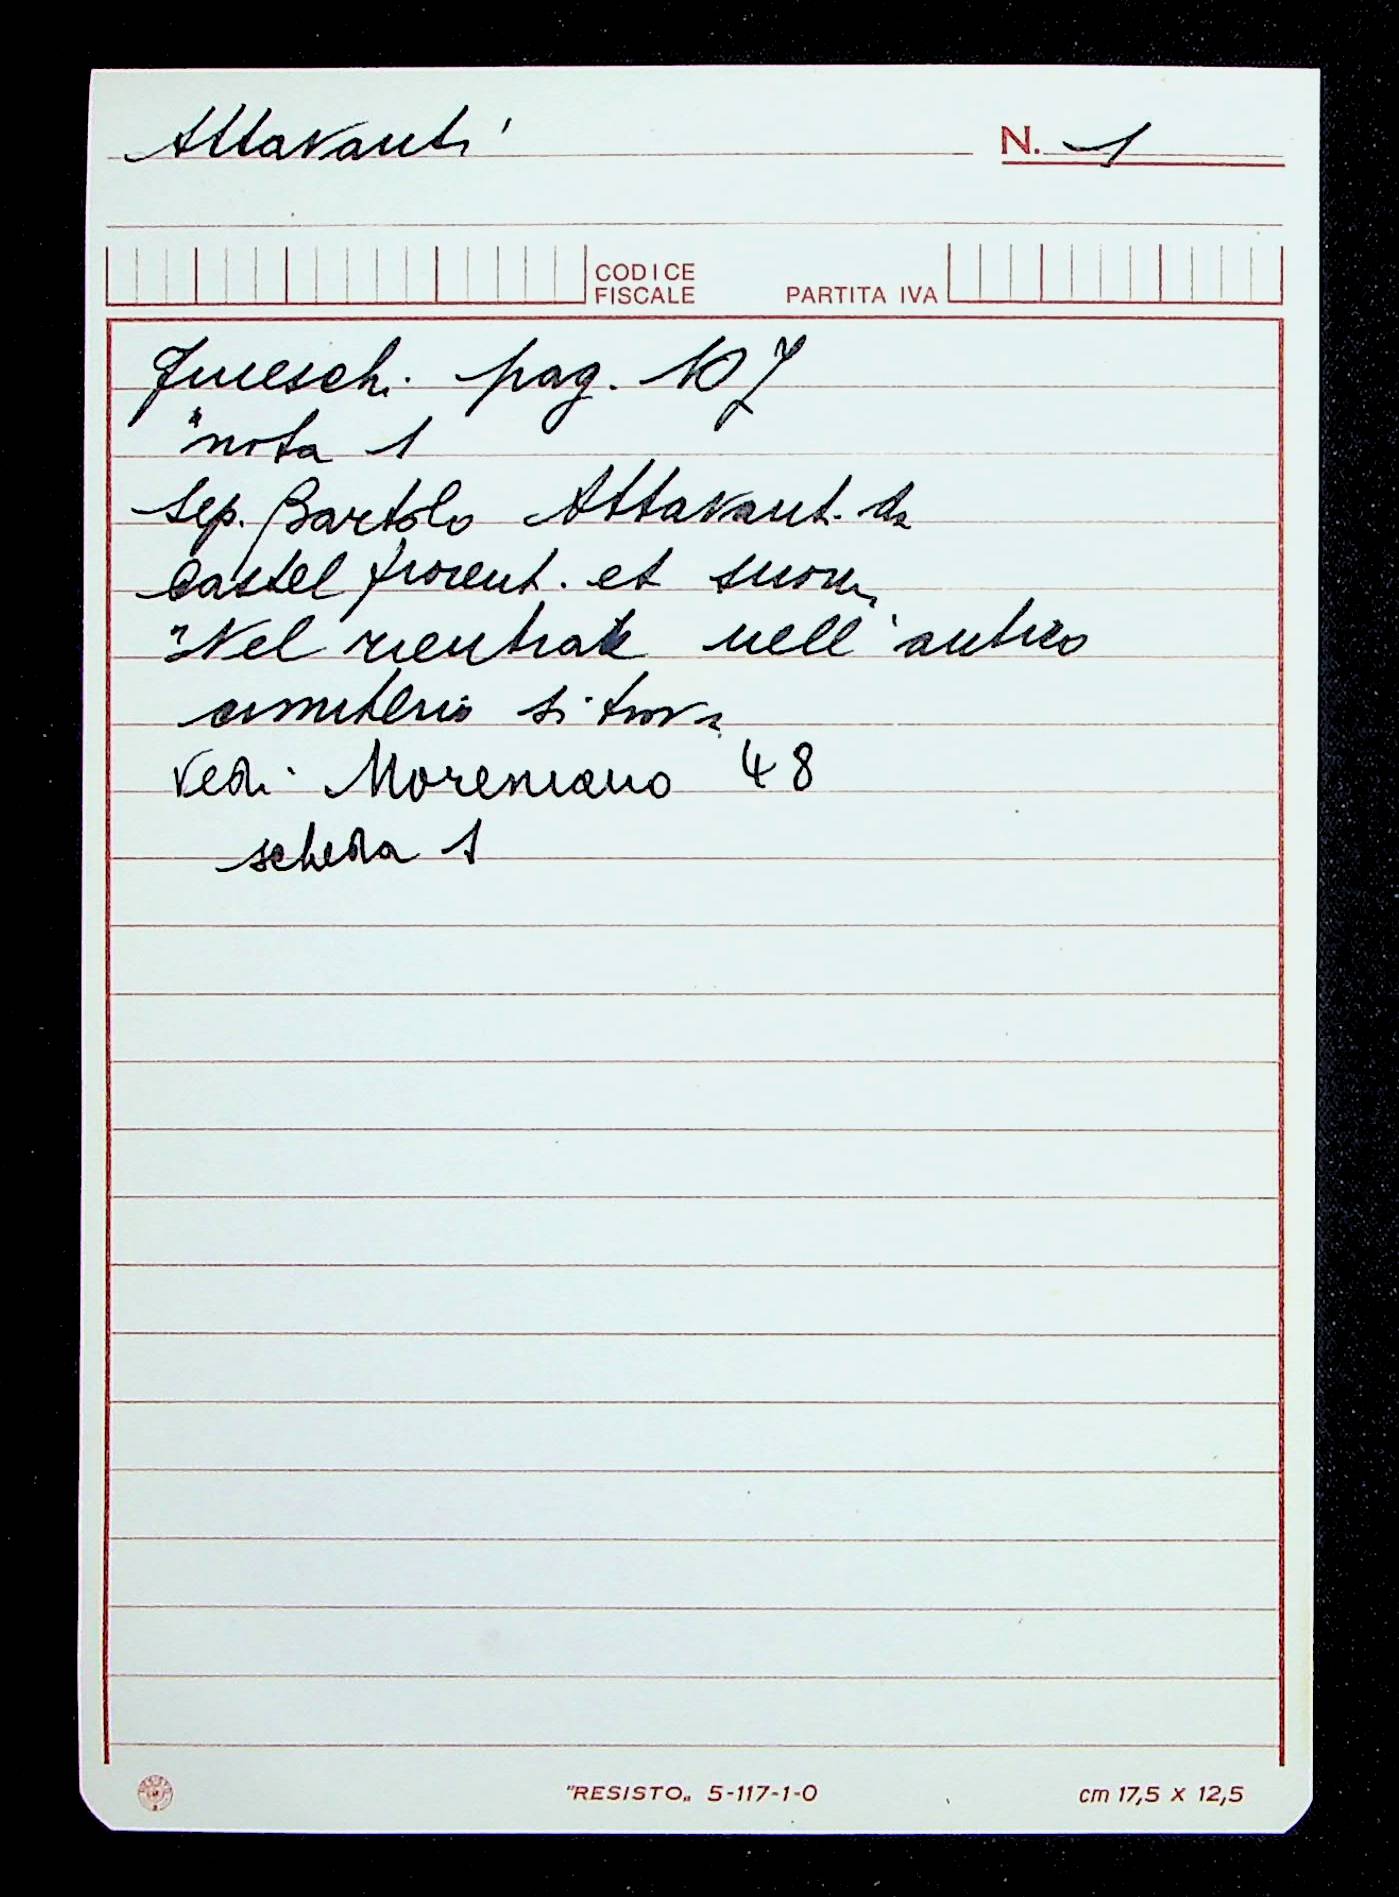 Attavanti
N. 1
CODICE
FISCALE
PARTITA IVA
pag. 107
"nota 1
Sep. Bartolo Attavanti da
Castel fiorent. et suorum
"Nel rientrare nell'antico
cimiterio si trova
vedi Moreniano 48
scheda 1
"RESISTO„ 5-117-1-0
cm 17,5 x 12,5